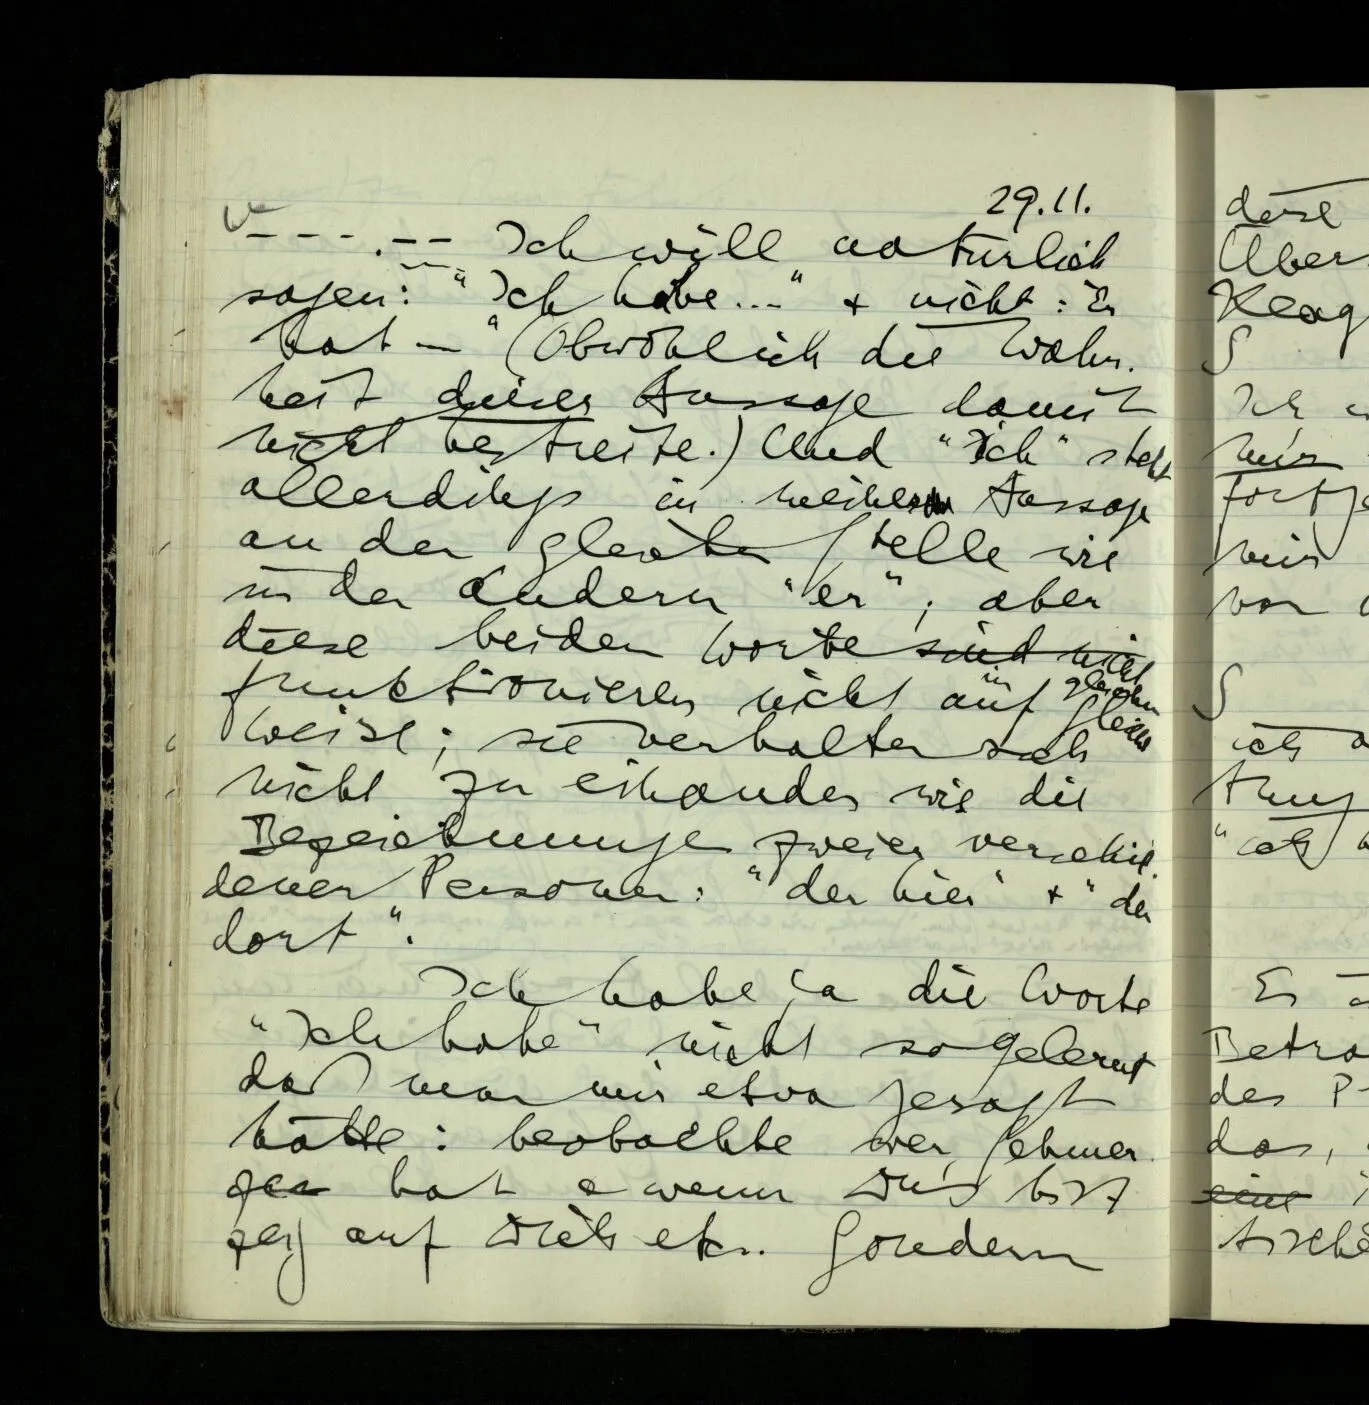 29.11.
Ich will natürlich
sagen: "Ich habe..." + nicht: Er
hat — " (Obwohl ich die Wahr-
heit dieser Aussage damit
nicht bestreite.) Und "Ich" steht
allerdings in meiner Aussage
an der gleichen Stelle wie
in der andern "er"; aber
diese beiden Worte sind nicht
funktionieren nicht auf gleiche
in gleicher
Weise; sie verhalten sich
nicht zu einander wie die
Bezeichnungen zweier verschie-
dener Personen: "der hier" + "der
dort".
Ich habe ja die Worte
"Ich habe" nicht so gelernt
daß man mir etwa gesagt
hätte: beobachte wer Schmer-
zen hat & wenn Du's bist
zeig auf Dich etc.. Sondern